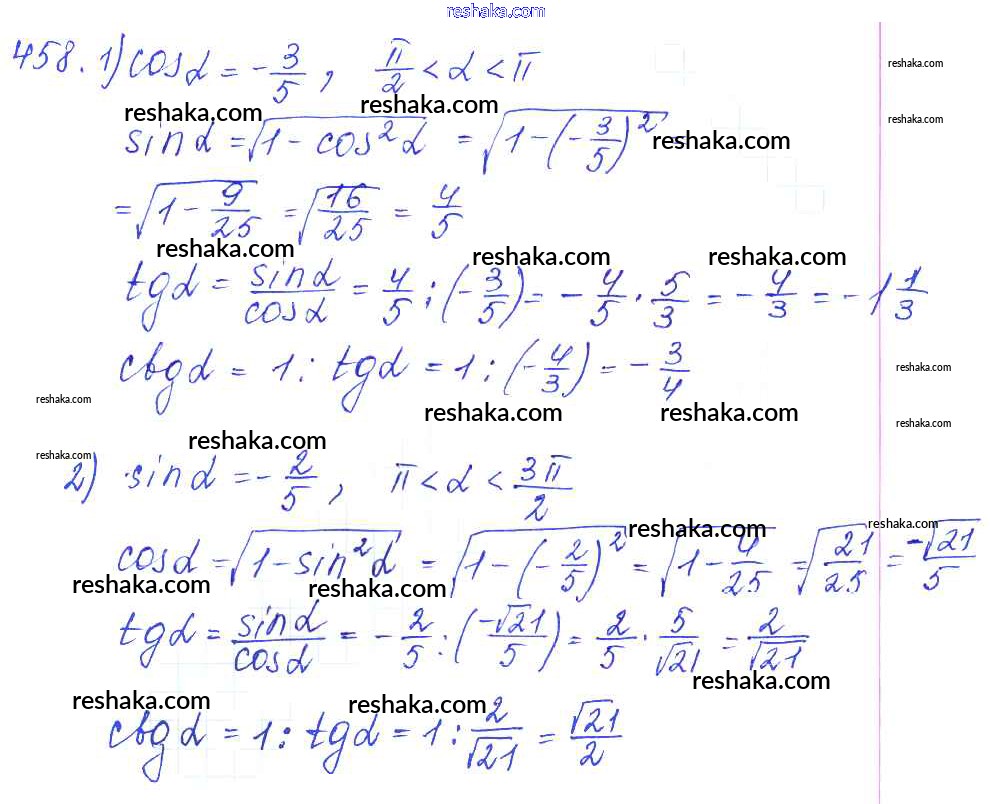 reshaka.com
458. 1) cos α = -3/5, π/2 < α < π
reshaka.com
reshaka.com reshaka.com
reshaka.com
sin α = √(1 - cos²α) = √(1 - (-3/5)²) =
reshaka.com
= √(1 - 9/25) = √(16/25) = 4/5
reshaka.com reshaka.com reshaka.com
tg α = sin α/cos α = 4/5 : (-3/5) = -4/5 · 5/3 = -4/3 = -1 1/3
ctg α = 1 : tg α = 1 : (-4/3) = -3/4
reshaka.com
reshaka.com
reshaka.com reshaka.com reshaka.com
reshaka.com
reshaka.com
2) sin α = -2/5, π < α < 3π/2
reshaka.com reshaka.com
cos α = √(1 - sin²α) = √(1 - (-2/5)²) = √(1 - 4/25) = √(21/25) = -√21/5
reshaka.com reshaka.com
tg α = sin α/cos α = -2/5 : (-√21/5) = 2/5 · 5/√21 = 2/√21
reshaka.com
reshaka.com reshaka.com
ctg α = 1 : tg α = 1 : 2/√21 = √21/2